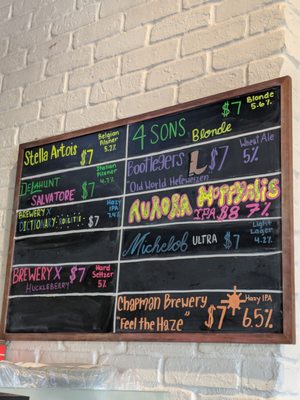 Stella Artois $7 Belgian Pilsner 5.2%
DELAHUNT SALVATORE $7 Italian Pilsner 4.7%
BREWERY X DICTIONARY $7 Hazy IPA
BREWERY X $7 Hard Seltzer 5%
HUCKLEBERRY
4 SONS $7 Blonde 5.6%
Blonde
Bootlegers $7 Wheat Ale 5%
"Old World Hefeweizen"
AURORA HOPPYALIS
IPA $8 7%
Michelob ULTRA $7 Light Lager 4.2%
CHAPMAN BREWERY $7 Hazy IPA 6.5%
"Feel the Haze"